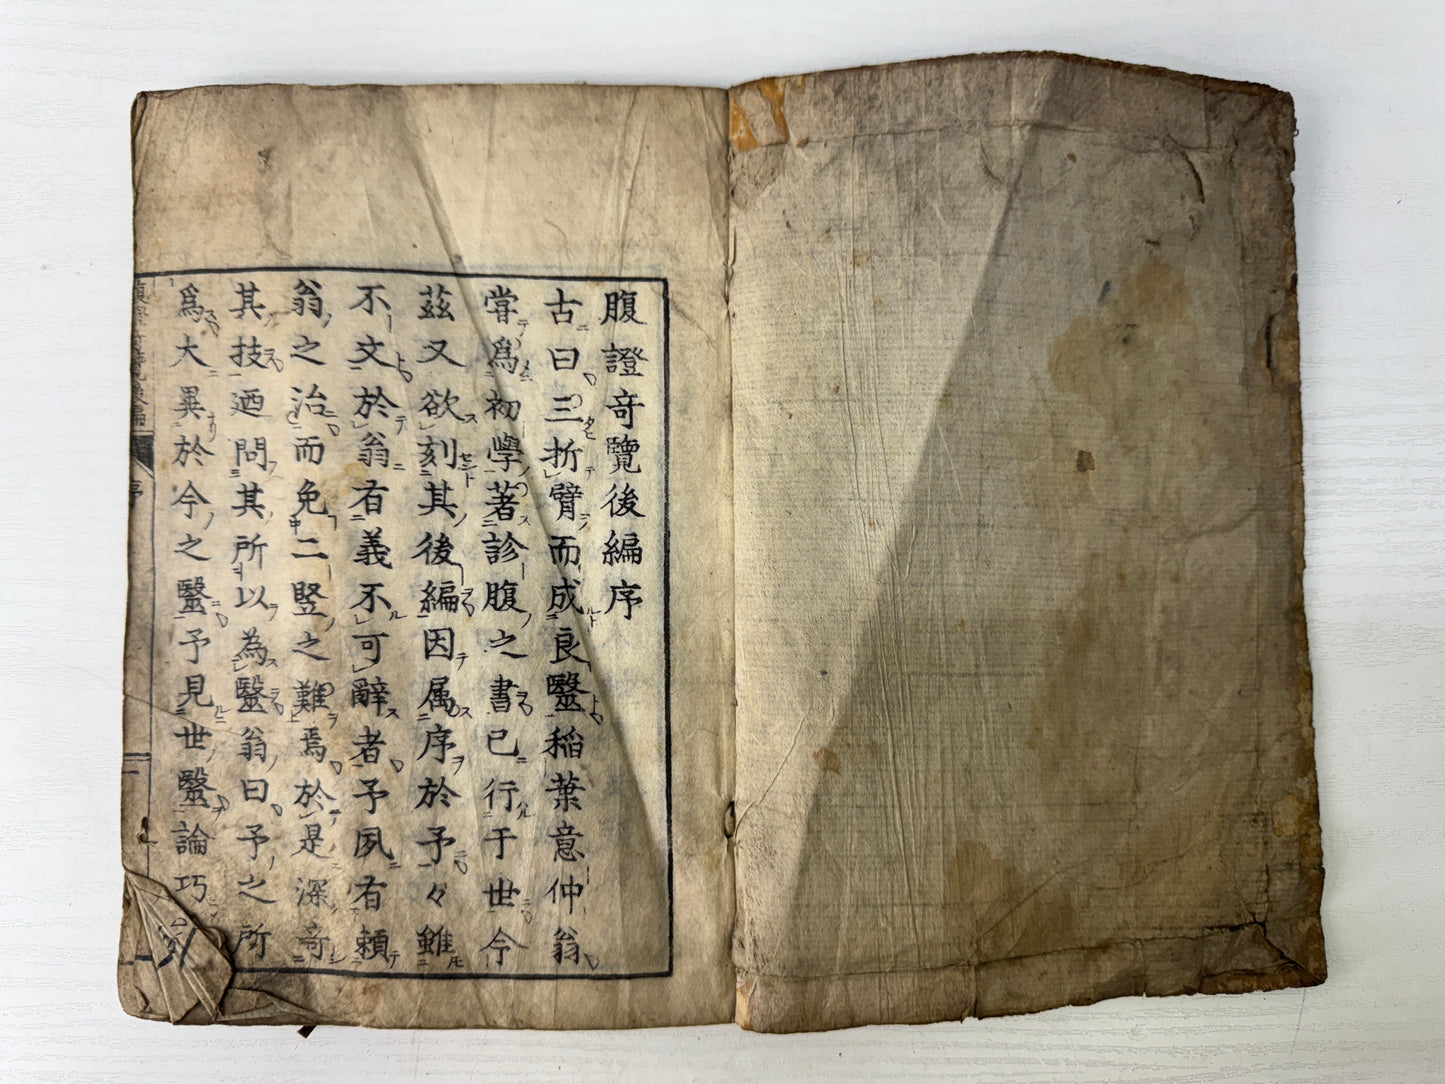 腹證奇覽後編序
古曰三折臂而成良醫稲葉意仲翁
嘗爲初學著診腹之書已行于世今
茲又欲刻其後編因属序於予々雖
不文於翁有義不可辭者予夙有頼
翁之治而免二竪之難焉於是深竒
其技迺問其所以為醫翁曰予之所
爲大異於今之醫予見世醫論巧
腹證奇覽後編
序